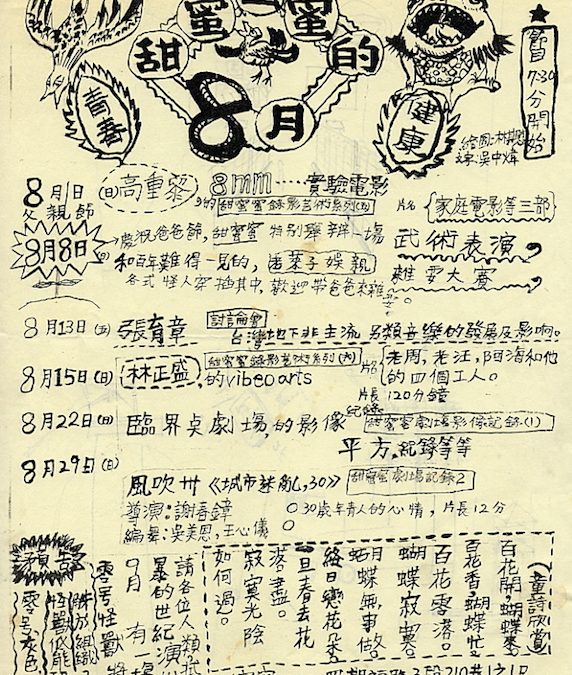 甜蜜蜜的
8月
青春
健康
★
節目7:30分開始
8月1日(日)高重黎 8mm 實驗電影
的甜蜜蜜錄影藝術系列(五)
片名 家庭電影等三部
父親節
8月8日(日)
慶祝爸爸節,甜蜜蜜 特別舉辦一場
武術表演
和百年難得一見的,
雜耍大賽
各式怪人穿插其中,歡迎帶爸爸來雜耍。
8月13日(五) 張育章 討論會
台灣地下非主流另類音樂的發展及影响。
8月15日(日) 林正盛 甜蜜蜜錄影藝術系列(六)
的vibeo arts
片名 老周,老汪,阿海和他的四個工人。
片長 120分鐘
8月22日(日) 臨界桌劇場,的影像紀錄
甜蜜蜜劇場影像記錄(1)
平方.紀錄等等
8月29日(日)
風吹卅《城市迷亂,30》 甜蜜蜜劇場記錄2
導演:謝春鐘
○30歲年青人的心情,片長12分
編舞:吳美恩,王心儀
童詩欣賞
百花開,蝴蝶來。
百花香,蝴蝶忙
百花零落。
蝴蝶寂寞。
蝴蝶無事做。
終日戀花朵。
一旦春去花
落盡。
寂寞光陰
如何過。
預告
請各位人類抵
暴的世紀演
9月 有一場
零号怪獸將